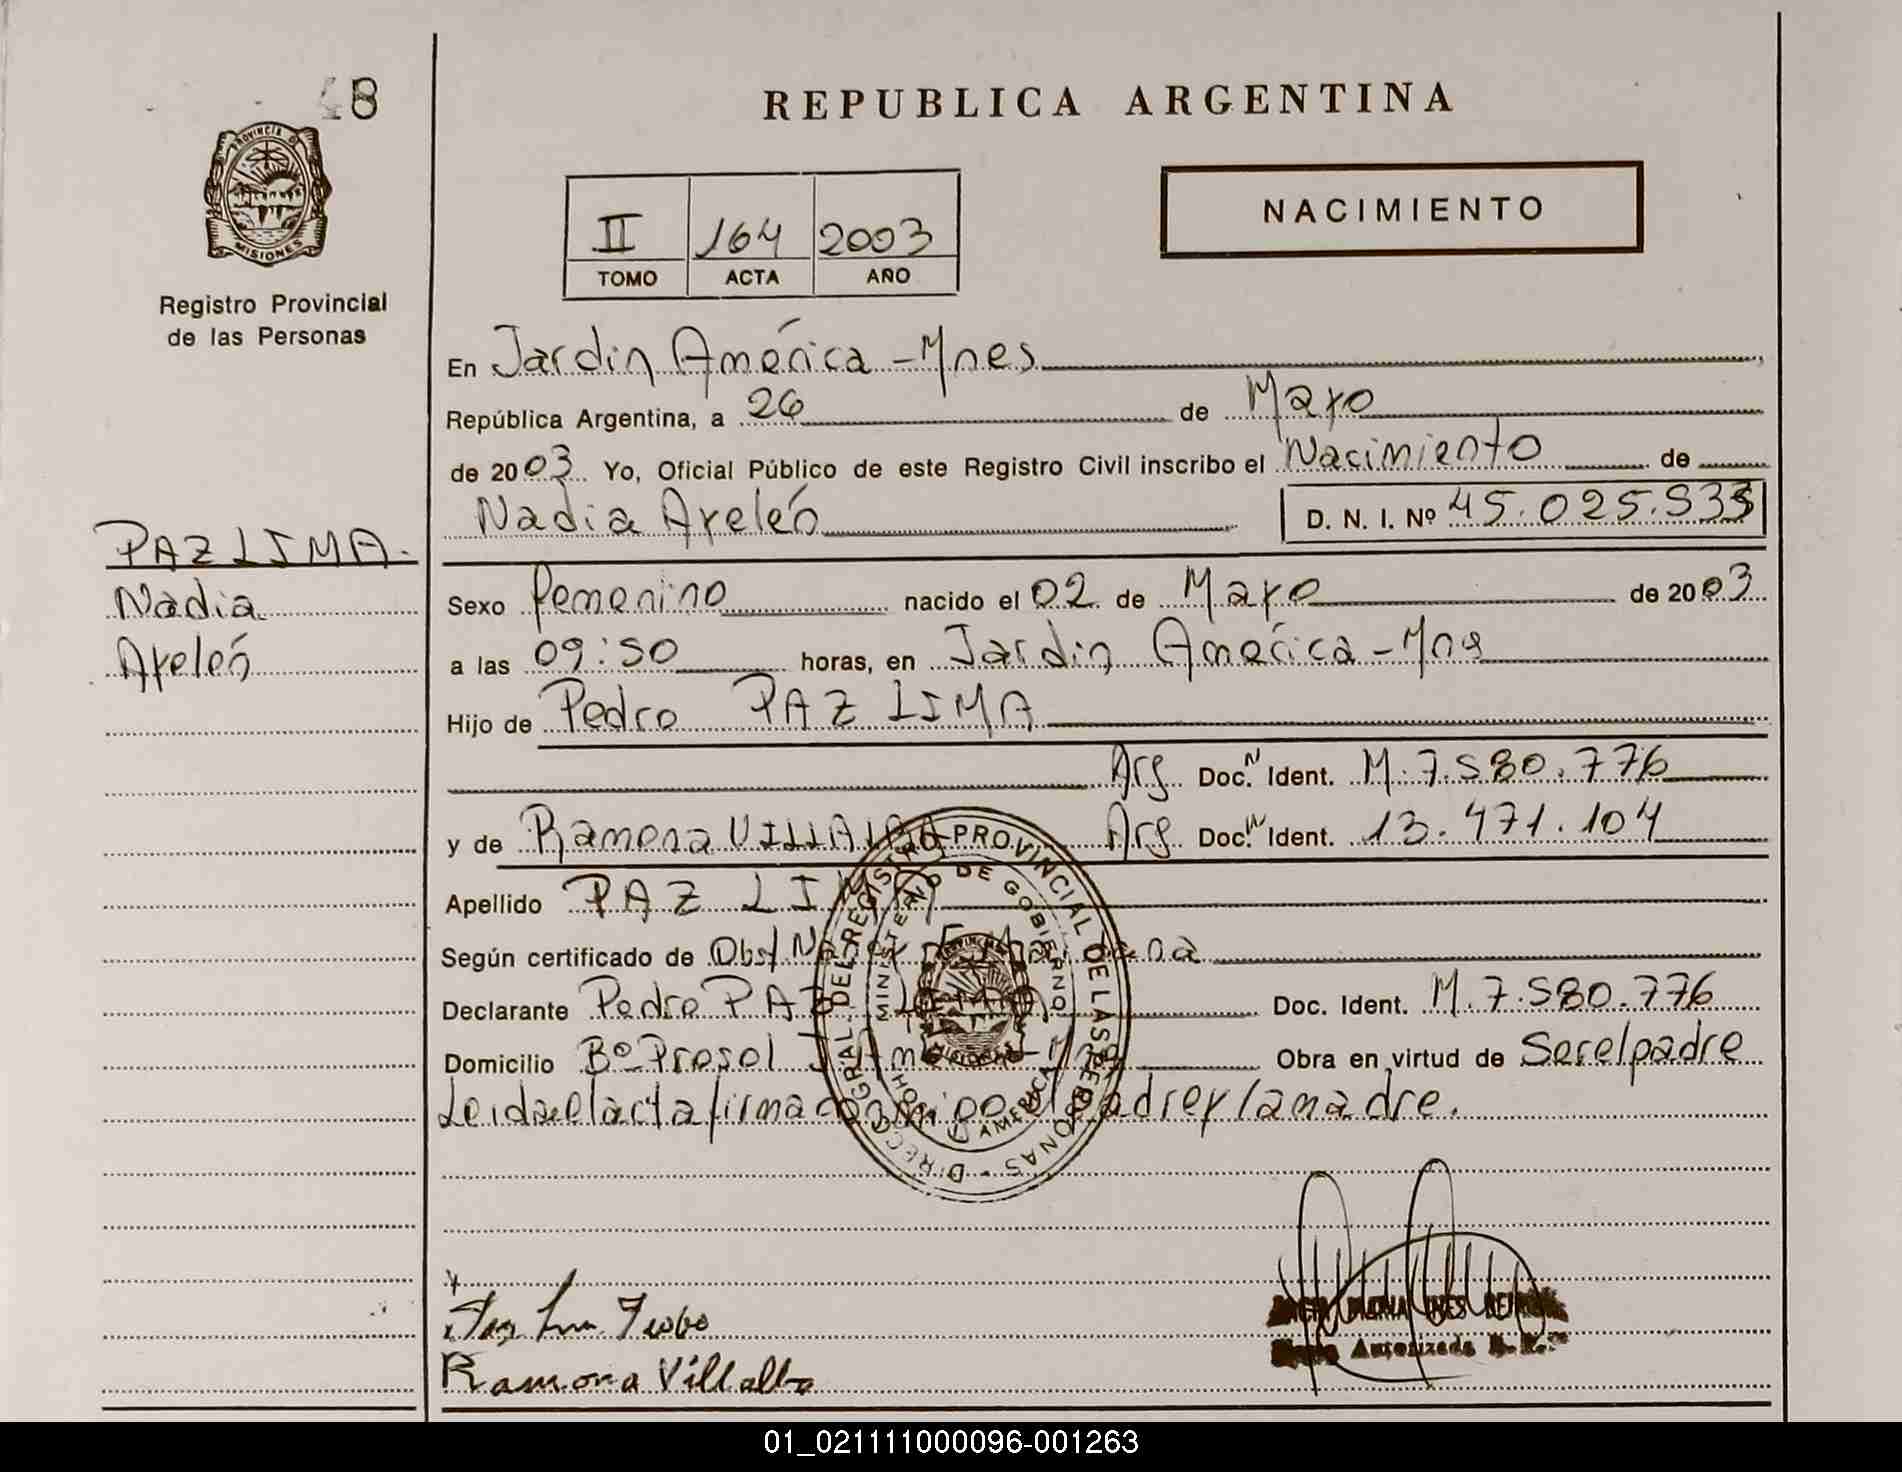 48
PROVINCIA DE
MISIONES
Registro Provincial
de las Personas
PAZ LIMA.
Nadia
Ayelén
REPUBLICA ARGENTINA
II 164 2003
TOMO ACTA AÑO
NACIMIENTO
En Jardin América - Mnes
República Argentina, a 26 de Mayo
de 2003 Yo, Oficial Público de este Registro Civil inscribo el Nacimiento de
Nadia Ayelén D. N. I. Nº 45.025.933
Sexo Femenino nacido el 02 de Mayo de 2003
a las 09:50 horas, en Jardin América - Mns
Hijo de Pedro PAZ LIMA
Arg Doc.N Ident. M. 7.580.776
y de Ramona VILLALBA Arg Doc.N Ident. 13.471.104
Apellido PAZ LIMA
Según certificado de Obst
Declarante Pedro PAZ LIMA Doc. Ident. M. 7.580.776
Domicilio Bº Prosol Obra en virtud de Serelpadre
Leidaelacta firma el padre y la madre.
DIRECC. GRAL. DEL REGISTRO PROVINCIAL DE LAS PERSONAS
MINISTERIO DE GOBIERNO
AMERICA
Ramona Villalba
INES
Autorizada
01_021111000096-001263